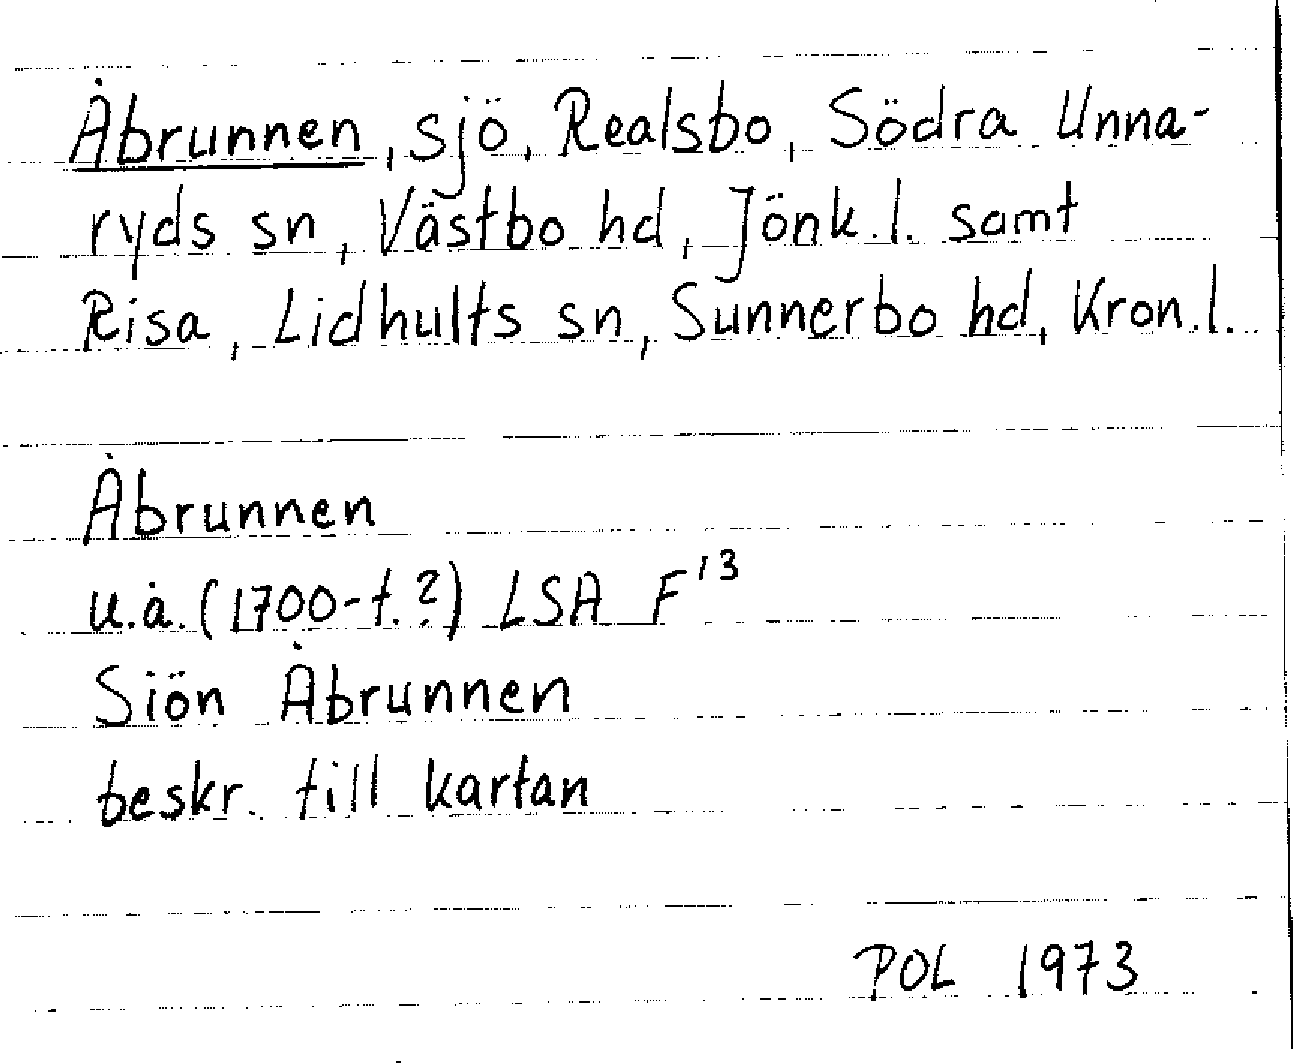 Åbrunnen, sjö, Realsbo, Södra Unna-
ryds sn, Västbo hd, Jönk.l. samt
Risa, Lidhults sn, Sunnerbo hd, Kron.l.
Åbrunnen
u.å. (1700-t.?) LSA F¹³
Siön Åbrunnen
beskr. till kartan
POL 1973